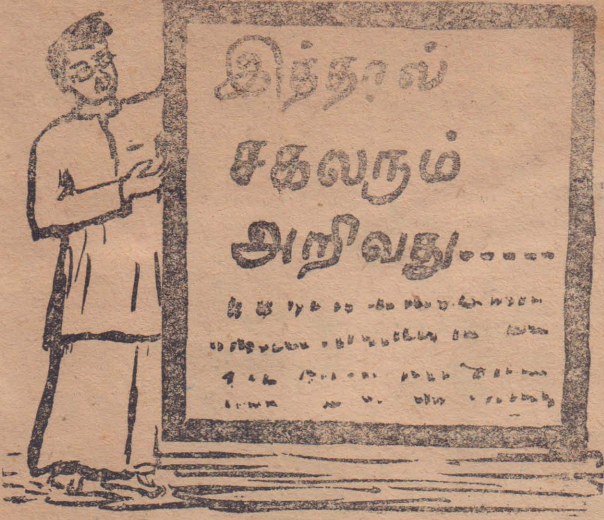 இத்தால்
சகலரும்
அறிவது.....